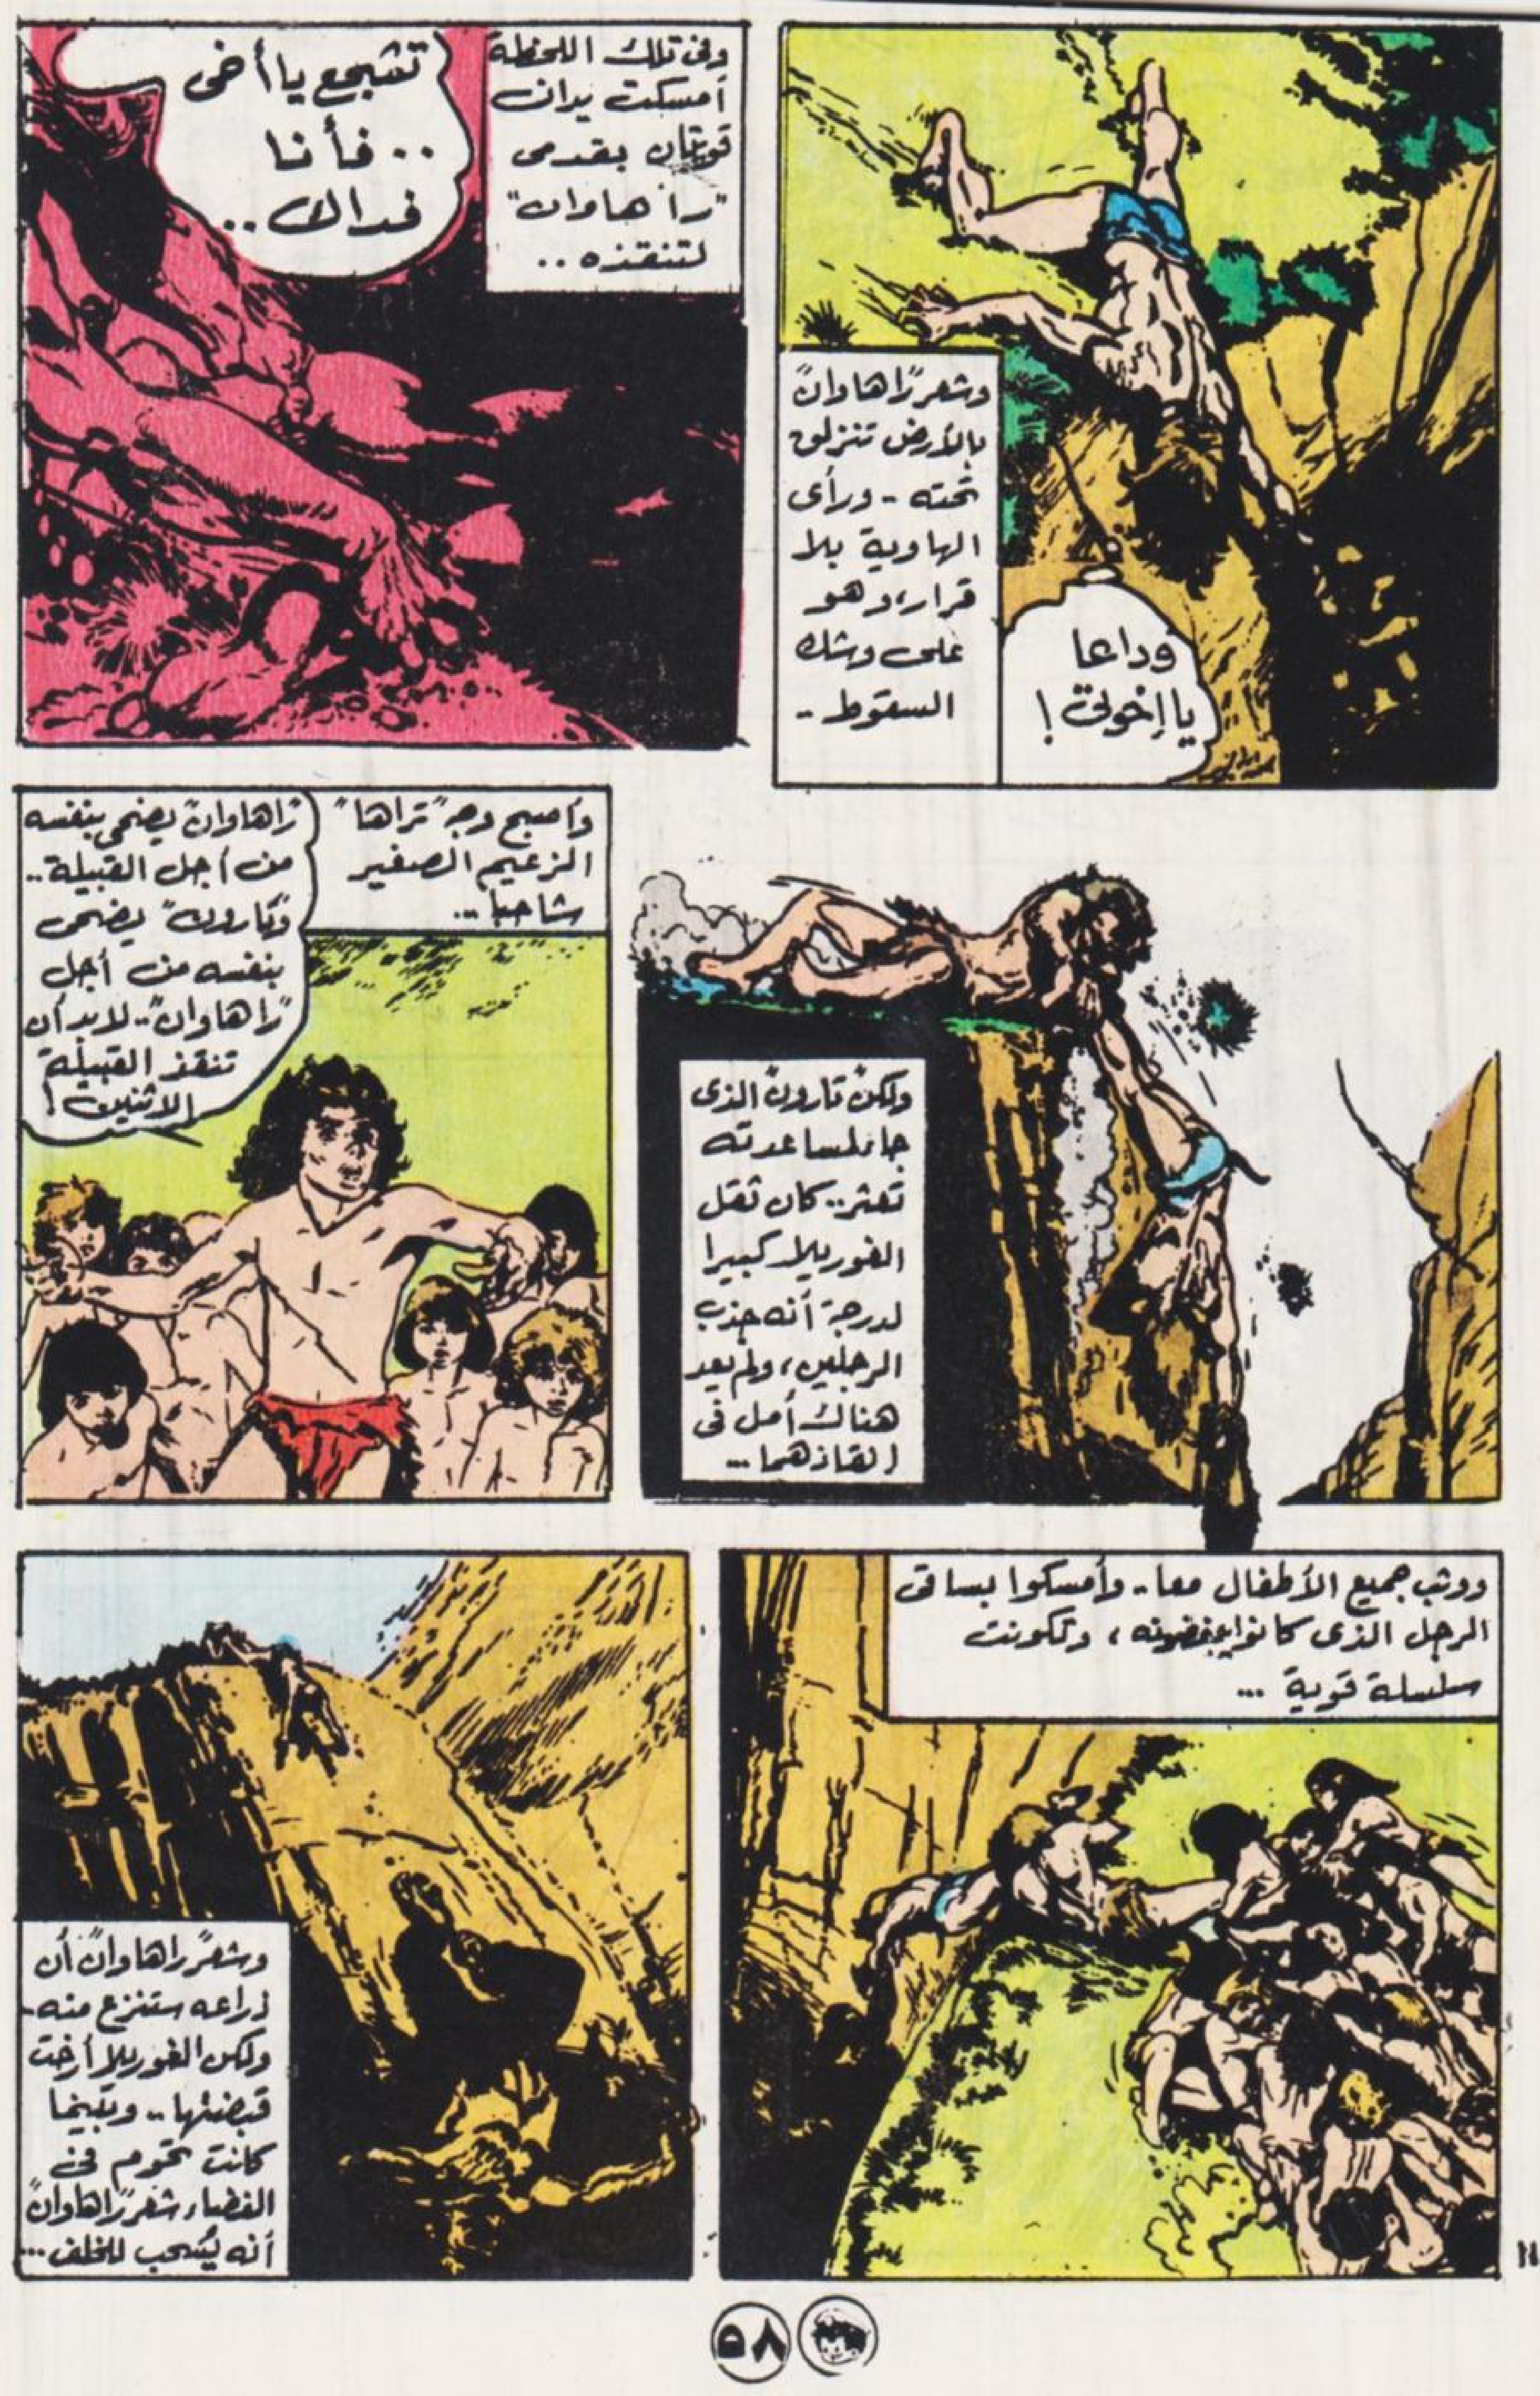 وشعر "راهاوان"
بالأرض تنزلق
تحته - ورأى
الهاوية بلا
قرار، وهو
على وشك
السقوط -
وداعا
يا إخوتى !
وفى تلك اللحظة
أمسكت يدان
قويتان بقدمى
"راهاوان"
لتنقذه ..
تشجع يا أخى
.. فأنا
فداك ..
ولكن "تارون" الذى
جاء لمساعدته
تعثر .. كان ثقل
الغوريلا كبيرا
لدرجة أنه جذب
الرجلين، ولم يعد
هناك أمل فى
إنقاذهما ...
وأصبح وجه "تراها"
الزعيم الصغير
شاحبا ...
"راهاوان" يضحى بنفسه
من أجل القبيلة ..
و"تارون" يضحى
بنفسه من أجل
"راهاوان" .. لابد أن
تنقذ القبيلة
الاثنين !
ووثب جميع الأطفال معا - وأمسكوا بساقى
الرجل الذى كانوا يبغضونه ، وتكونت
سلسلة قوية ...
وشعر "راهاوان" أن
ذراعه ستنزع منه -
ولكن الغوريلا أرخت
قبضتها .. وبينما
كانت تحوم فى
الفضاء شعر "راهاوان"
أنه يُسحب للخلف ...
١١
٥٨